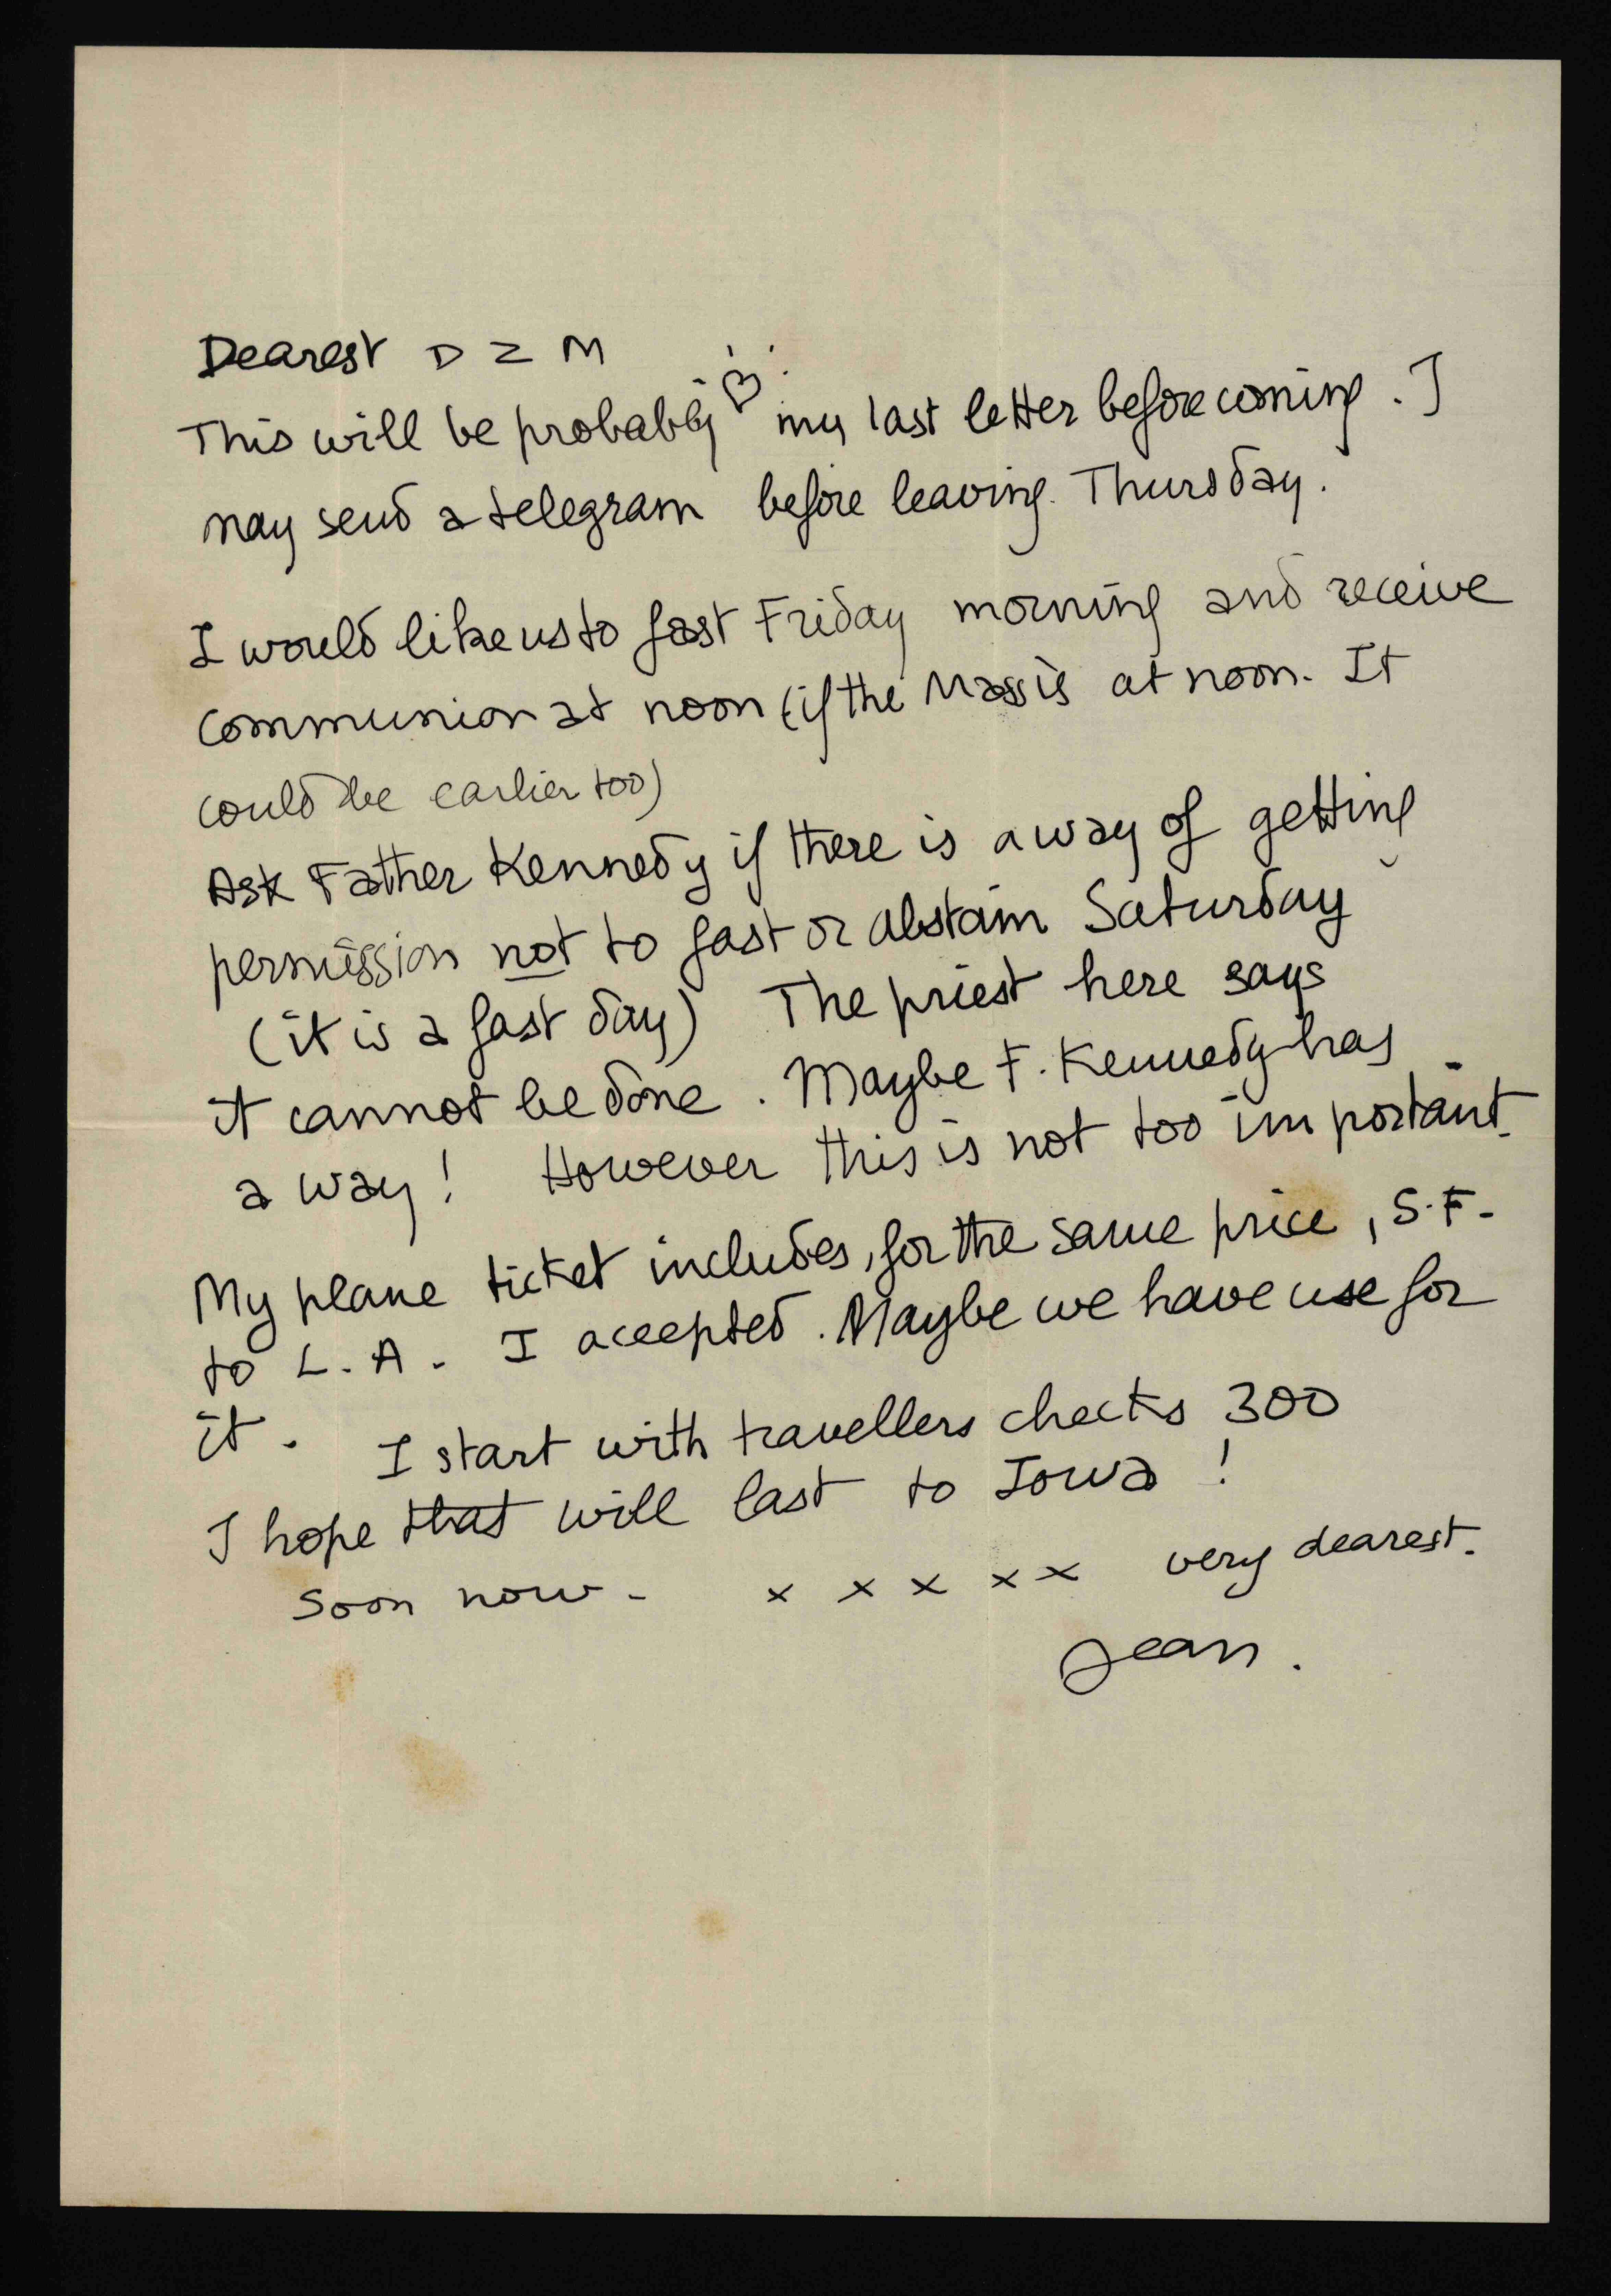 Dearest D Z M
This will be probably ♡ my last letter before coming. I
may send a telegram before leaving Thursday.
I would like us to fast Friday morning and receive
communion at noon (if the Mass is at noon. It
could be earlier too)
Ask Father Kennedy if there is a way of getting
permission not to fast or abstain Saturday
(it is a fast day) The priest here says
it cannot be done. Maybe F. Kennedy has
a way! However this is not too important.
My plane ticket includes, for the same price, S.F.
to L.A. I accepted. Maybe we have use for
it. I start with travellers checks 300
I hope that will last to Iowa!
Soon now - x x x x x very dearest.
Jean.